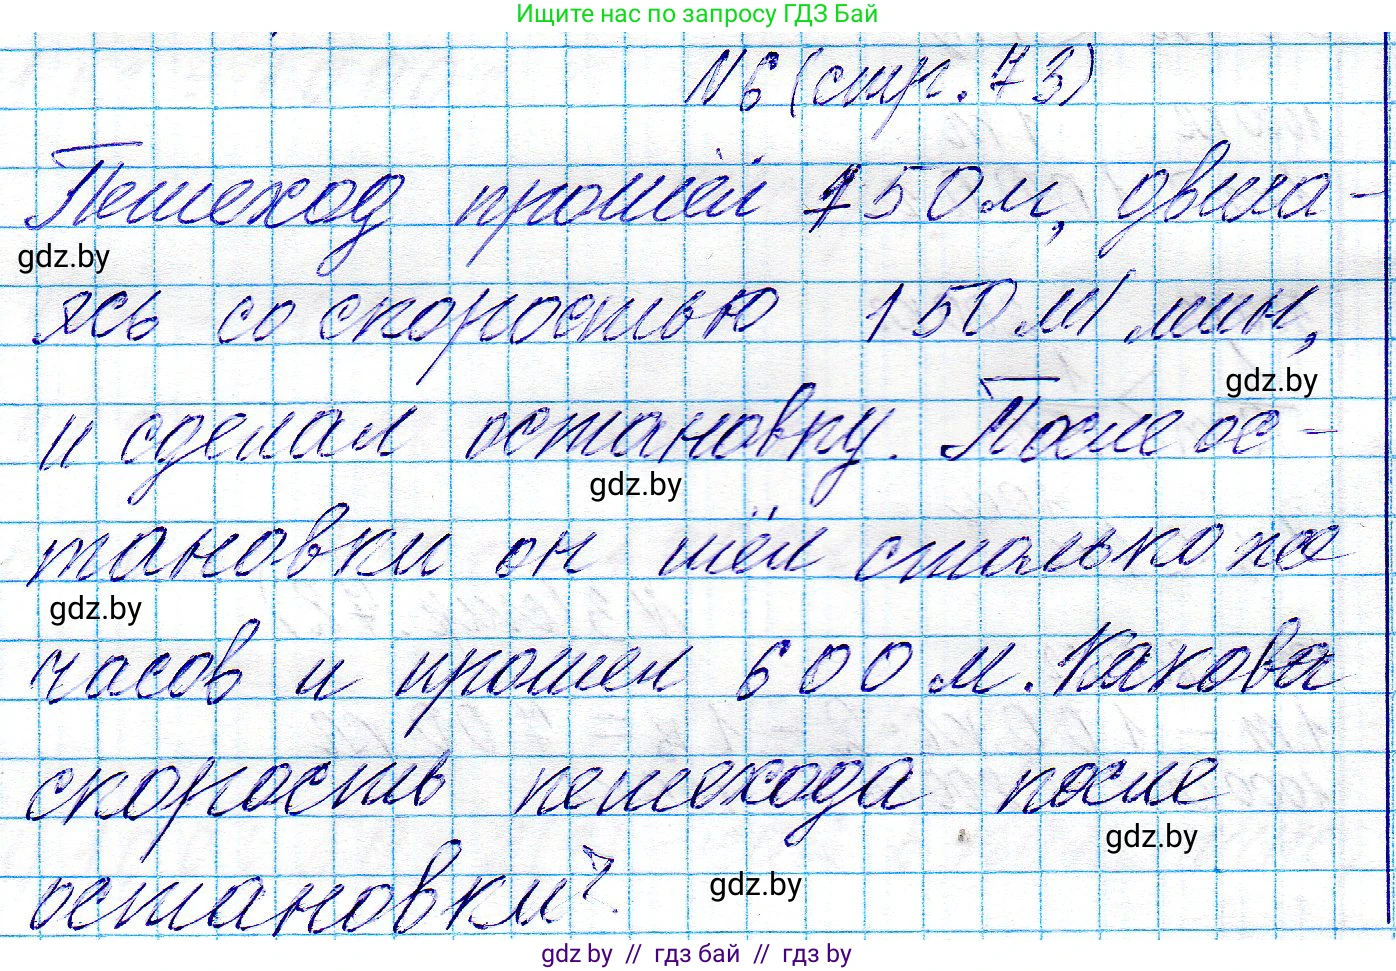 Ищите нас по запросу ГДЗ Бай
№6 (стр. 73)
Пешеход прошёл 750 м, двига-
gdz.by
ясь со скоростью 150 м/мин,
gdz.by
и сделал остановку. После ос-
gdz.by
тановки он шёл столько же
gdz.by
часов и прошел 600 м. Какова
скорость пешехода после
gdz.by
остановки?
gdz.by
gdz by // гдз бай // гдз by